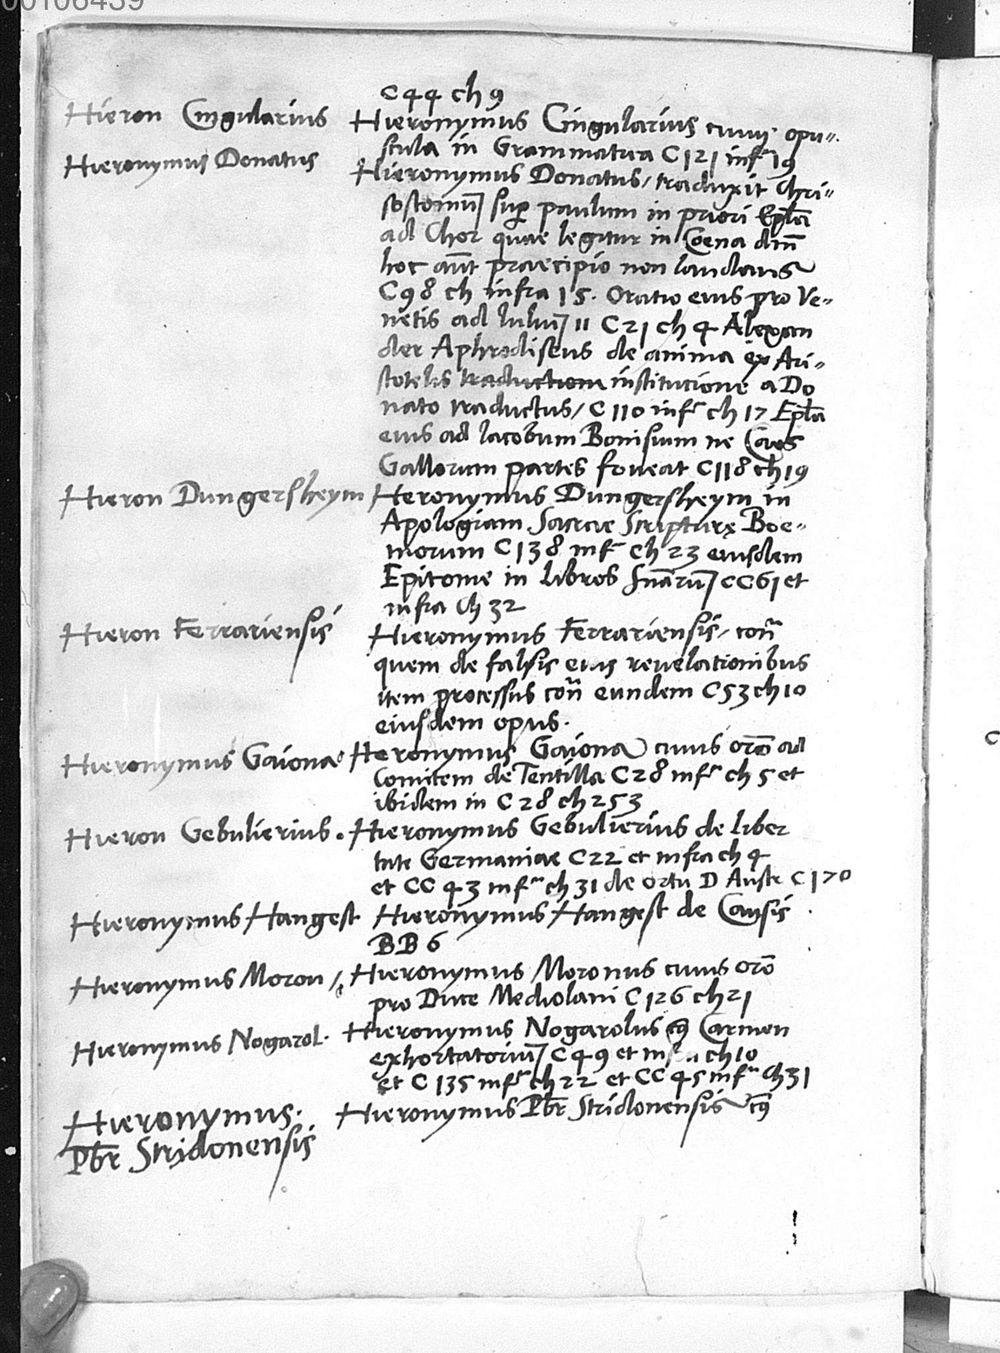 00106439
C 44 ch 9
Hieron Cingularius Hieronymus Cingularius cuius opu-
scula in Grammatica C 121 infr 19
Hieronymus Donatus Hieronymus Donatus / traduxit Chri-
sostomū sup paulum in priori Epl̄a
ad Chor quae legitur in Coena dm̄
hoc aūt praecipio non laudans
C 98 ch infra 15. Oratio eius pro Ve-
netis ad Iuliū II C 21 ch 4 Alexan
der Aphrodiseus de anima ex Ari-
stotelis traductione institutione a Do
nato traductus / C 110 infr ch 17 Epl̄a
eius ad Iacobum Bonisium ne
Gallorum partes foveat C 118 ch 19
Hieron Dungersheym Heronymus Dungersheym in
Apologiam Sacrae Scripturę Boe-
morum C 138 infr ch 23 eiusdem
Epitome in libros Sn̄arū CC 61 et
infra ch 32
Hieron Ferrariensis Hieronymus Ferrariensis / con̄
quem de falsis eius revelationibus
item processus con̄ eundem C 53 ch 10
eiusdem opus.
Hieronymus Gaiona Heronymus Gaiona cuius orō ad
Comitem de Tentilla C 28 infr ch 5 et
ibidem in C 28 ch 253
Hieron Gebulierius. Hieronymus Gebulierius de liber
tate Germaniae C 22 et infra ch 4
et CC 43 infr ch 31 de ortu D Auste C 170
Hieronymus Hangest Hieronymus Hangest de Causis
BB 6
Hieronymus Moron / Hieronymus Moronus cuius orō
pro Duce Mediolani C 126 ch 21
Hieronymus Nogarol. Hieronymus Nogarolus c9 Carmen
exhortatoriū C 49 et infra ch 10
et C 135 infr ch 22 et CC 45 infr ch 31
Hieronymus. Hieronymus Pb̄r Stridonensis c9
Pb̄r Stridonensis